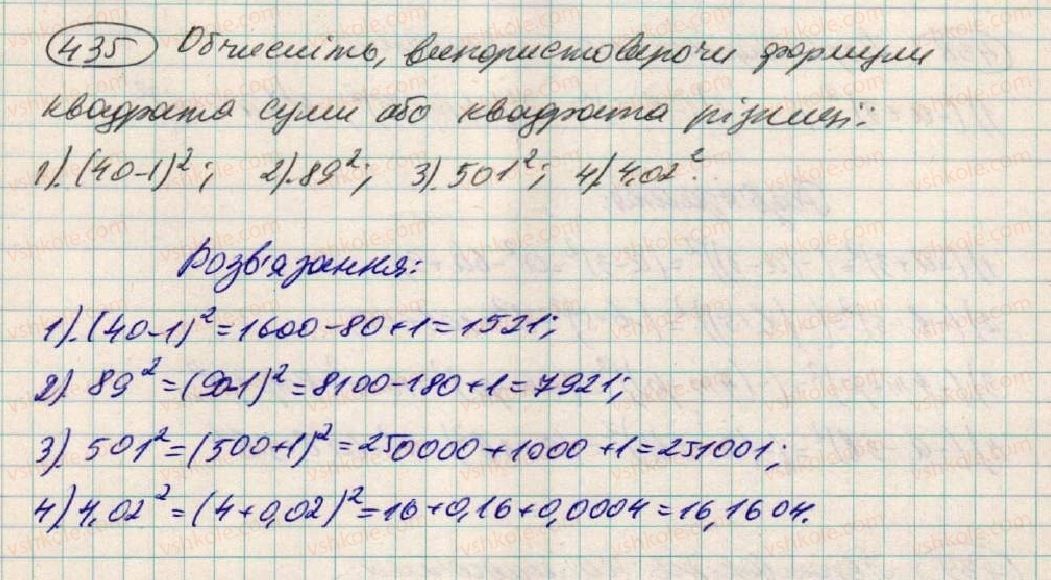 435 Обчисліть, використовуючи формули
квадрата суми або квадрата різниці:
1). (40-1)²; 2). 89²; 3). 501²; 4). 4,02².
Розв'язання:
1). (40-1)² = 1600-80+1 = 1521;
2). 89² = (90-1)² = 8100-180+1 = 7921;
3). 501² = (500+1)² = 250000+1000+1 = 251001;
4). 4,02² = (4+0,02)² = 16+0,16+0,0004 = 16,1604.